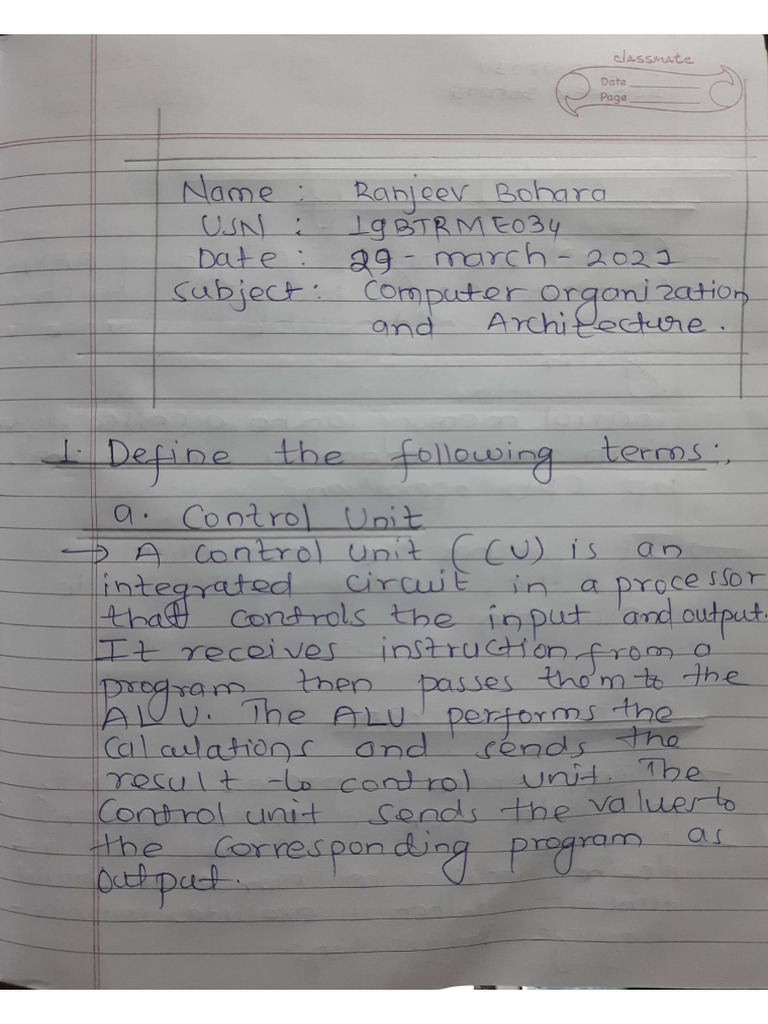 classmate
Date
Page
Name : Ranjeev Bohara
USN : 19BTRME034
Date : 29-march-2021
Subject : Computer organization
and Architecture.
1. Define the following terms:
a. Control Unit
→ A control unit (CU) is an
integrated circuit in a processor
that controls the input and output.
It receives instruction from a
program then passes them to the
ALU. The ALU performs the
calculations and sends the
result to control unit. The
Control unit sends the values to
the corresponding program as
output.